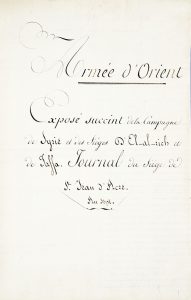 Armée d'Orient
Exposé succint de la Campagne
de Syrie et des Sieges D'El-al-rich et
de Jaffa. Journal du Siege de
St. Jean d'Acre.